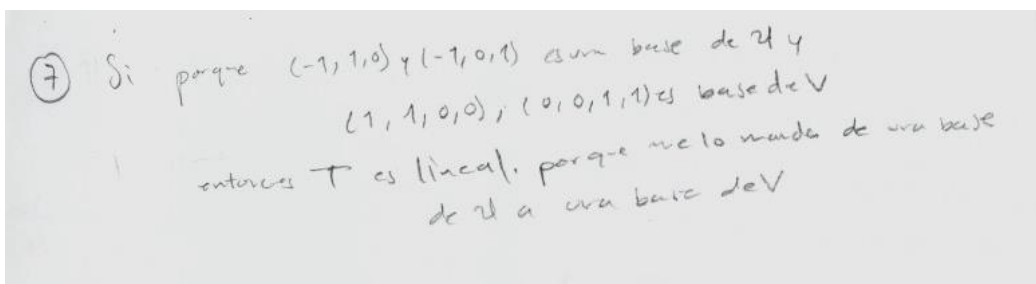 ⑦ Si porque (-1,1,0) y (-1,0,1) es una base de U y
(1,1,0,0), (0,0,1,1) es base de V
entonces T es lineal. porque me lo manda de una base
de U a una base de V